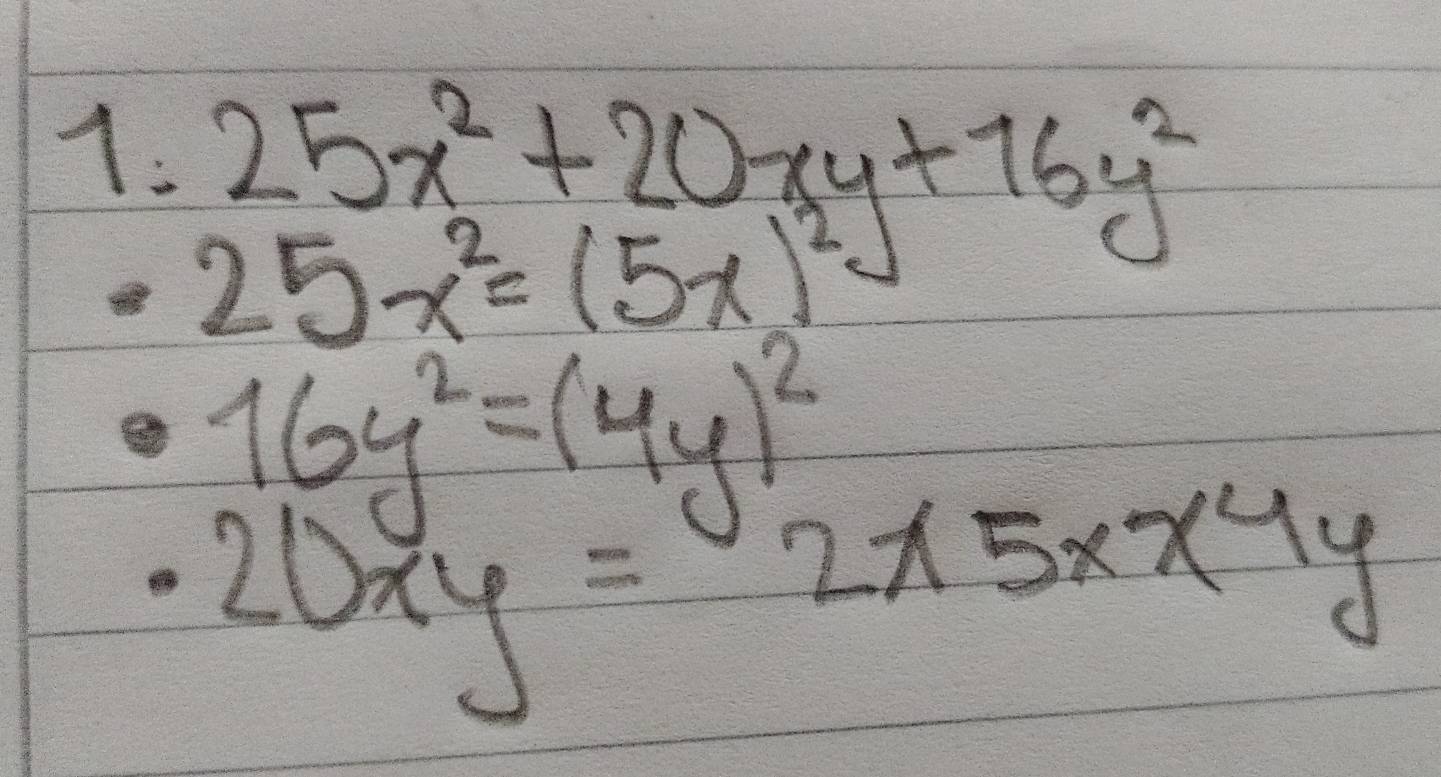 1. 25x² + 20xy + 16y²
• 25x² = (5x)²
• 16y² = (4y)²
• 20xy = 2 x 5x x 4y